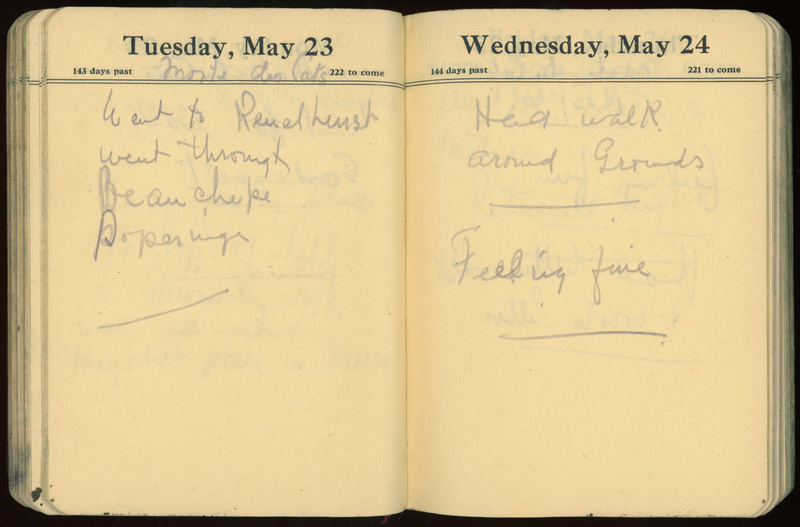 Tuesday, May 23
143 days past
222 to come
Monts des Cats
Went to
went through
Beauchepe
Poperinge
Wednesday, May 24
144 days past
221 to come
Had walk
around Grounds
Feeling fine